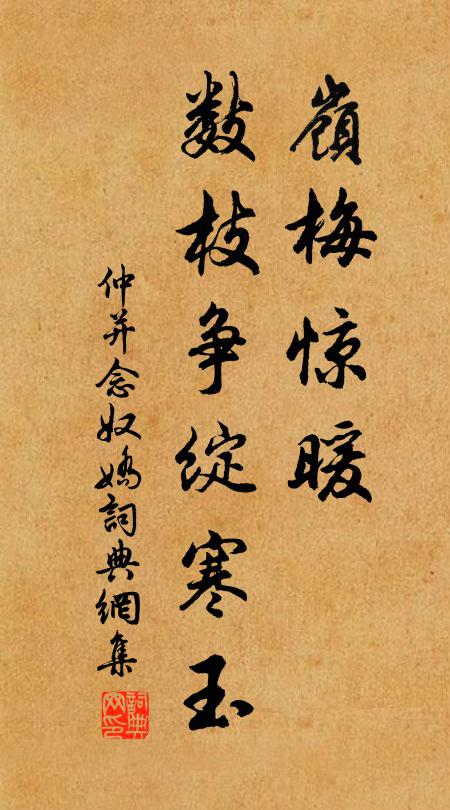 嶺梅惊暖
数枝争綻寒玉
仲并念奴嬌詞典網集
詞典网印